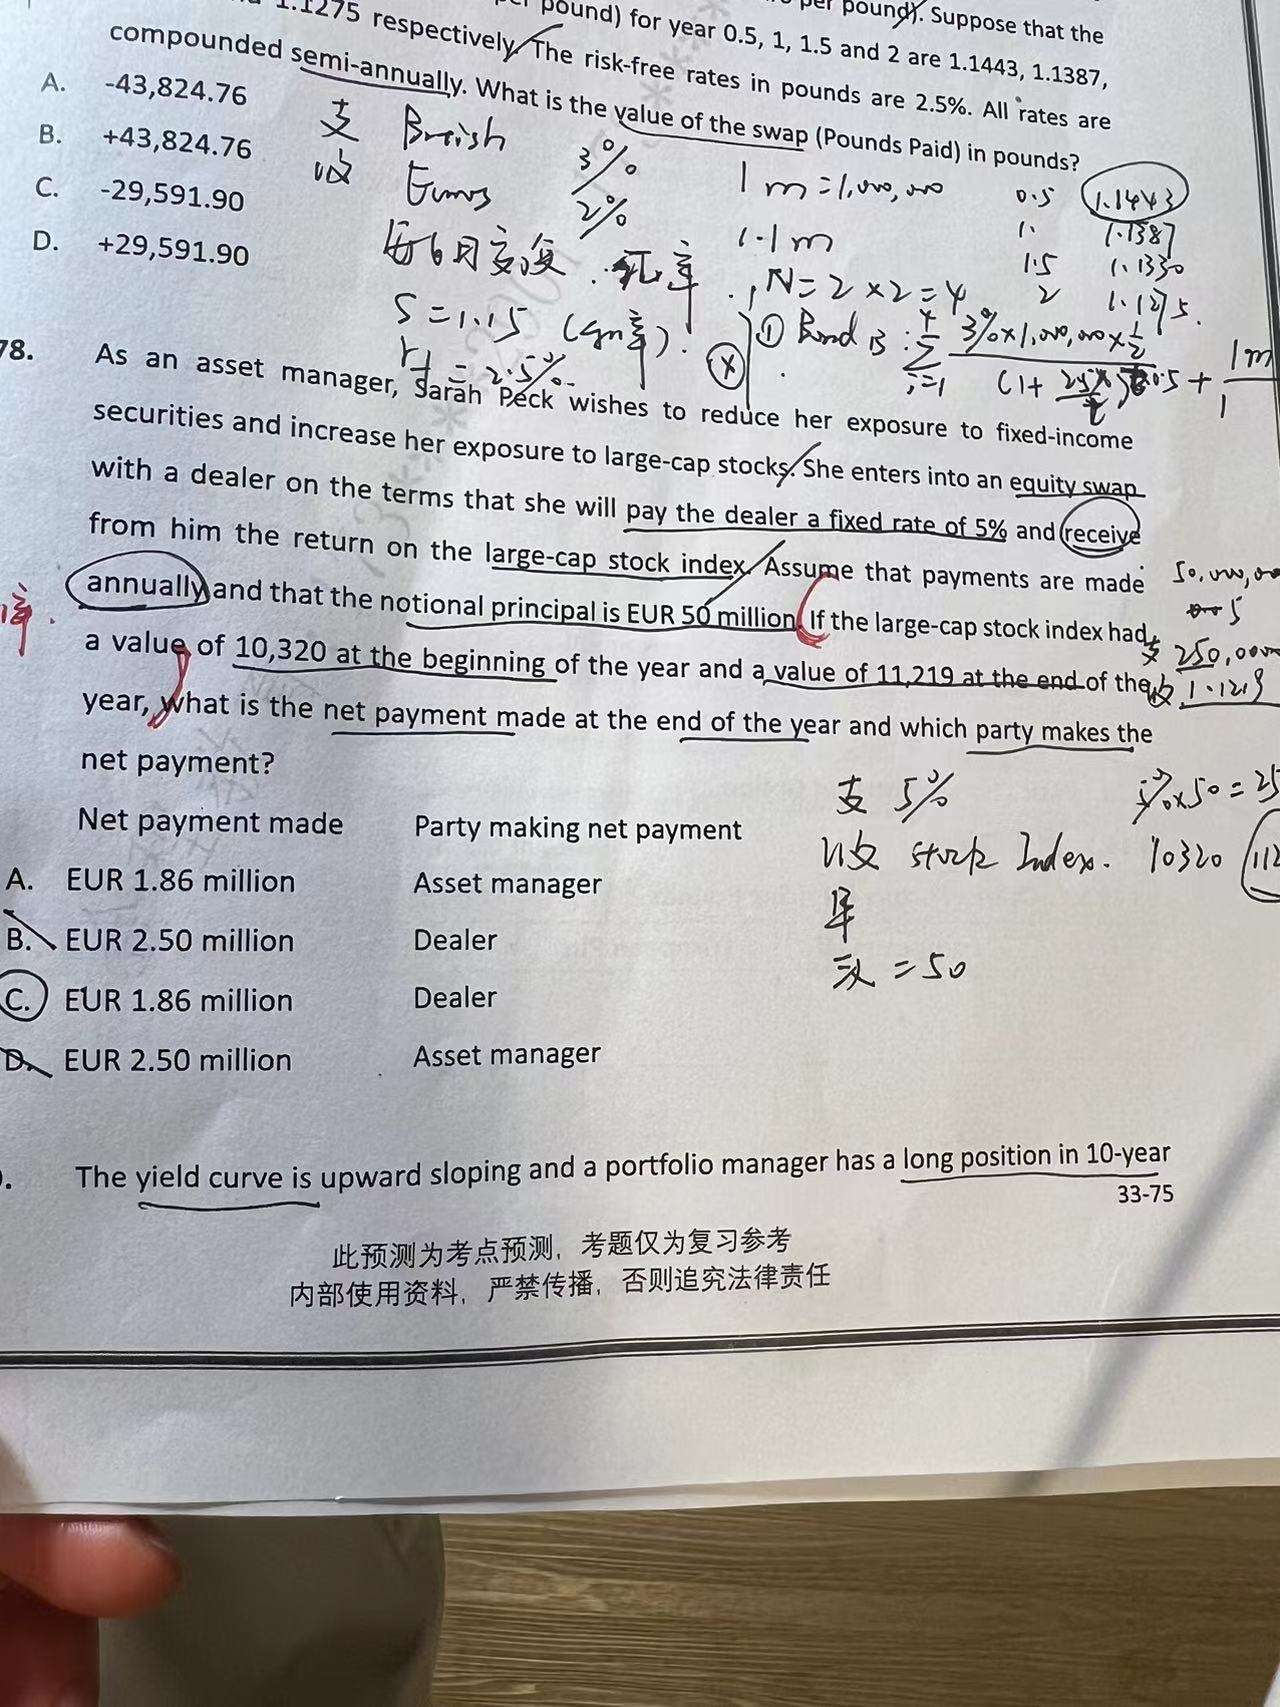 per pound). Suppose that the
pound) for year 0.5, 1, 1.5 and 2 are 1.1443, 1.1387,
1.1275 respectively. The risk-free rates in pounds are 2.5%. All rates are
compounded semi-annually. What is the value of the swap (Pounds Paid) in pounds?
A. -43,824.76
B. +43,824.76
C. -29,591.90
D. +29,591.90
支
收
3%
2%
1m=1,000,000
1.1m
0.5 1.1443
1. 1.1387
1.5 1.1330
2 1.1275.
N=2×2=4
S=1.15
= 2.5%
① Bond
3%×1,000,000×½
78. As an asset manager, Sarah Peck wishes to reduce her exposure to fixed-income
securities and increase her exposure to large-cap stocks. She enters into an equity swap
with a dealer on the terms that she will pay the dealer a fixed rate of 5% and receive
from him the return on the large-cap stock index. Assume that payments are made
annually and that the notional principal is EUR 50 million. If the large-cap stock index had
a value of 10,320 at the beginning of the year and a value of 11,219 at the end of the
year, what is the net payment made at the end of the year and which party makes the
net payment?
5
支 250,000
支 5%
5%×50=25
收 stock Index. 10320 112
=50
Net payment made Party making net payment
A. EUR 1.86 million Asset manager
B. EUR 2.50 million Dealer
C. EUR 1.86 million Dealer
D. EUR 2.50 million Asset manager
The yield curve is upward sloping and a portfolio manager has a long position in 10-year
33-75
此预测为考点预测，考题仅为复习参考
内部使用资料，严禁传播，否则追究法律责任